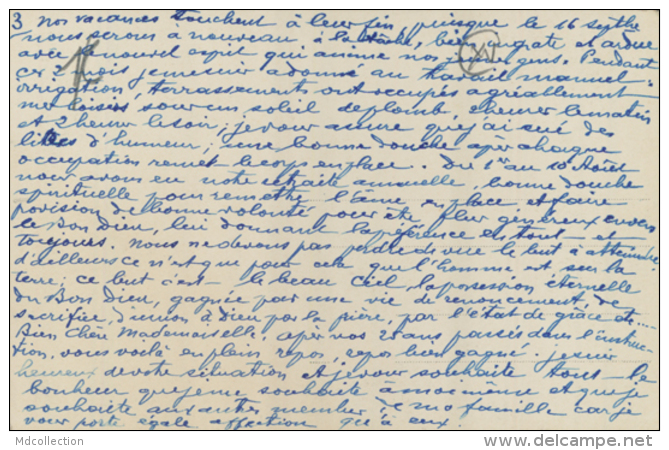 3 nos vacances touchent à leur fin, puisque le 16 septbre
nous serons à nouveau à la tâche, bien ingrate et ardue
avec le nouvel esprit qui anime nos jeunes gens. Pendant
ces 2 mois je me suis adonné au travail manuel.
irrigation, terrassements ont occupés agréablement
mes loisirs sous un soleil de plomb, 2 heures le matin
et 2 heures le soir, je vous assure que j'ai sué des
litres d'humeur; une bonne douche après chaque
occupation remet le corps en place. Du 1er au 10 Août
nous avons eu notre retraite annuelle, bonne douche
spirituelle pour remettre l'âme en place et faire
provision de bonne volonté pour être plus généreux envers
le Bon Dieu, lui donnant la préférence en tout et
toujours. nous ne devons pas perdre de vue le but à atteindre.
d'ailleurs ce n'est que pour cela que l'homme est sur la
terre; ce but c'est – le beau Ciel, la possession éternelle
du Bon Dieu, gagnée par une vie de renoncement, de
sacrifice, d'union à Dieu par la prière, par l'état de grâce etc....
Bien Chère Mademoiselle, après vos ans passés dans l'instruc-
tion, vous voilà en plein repos, repos bien gagné. Je suis
heureux de votre situation et je vous souhaite tout le
bonheur que je me souhaite à moi même et que je
souhaite aux autres membres de ma famille car je
vous porte égale affection qu'à eux.
XV
Mdcollection
delcampe.net